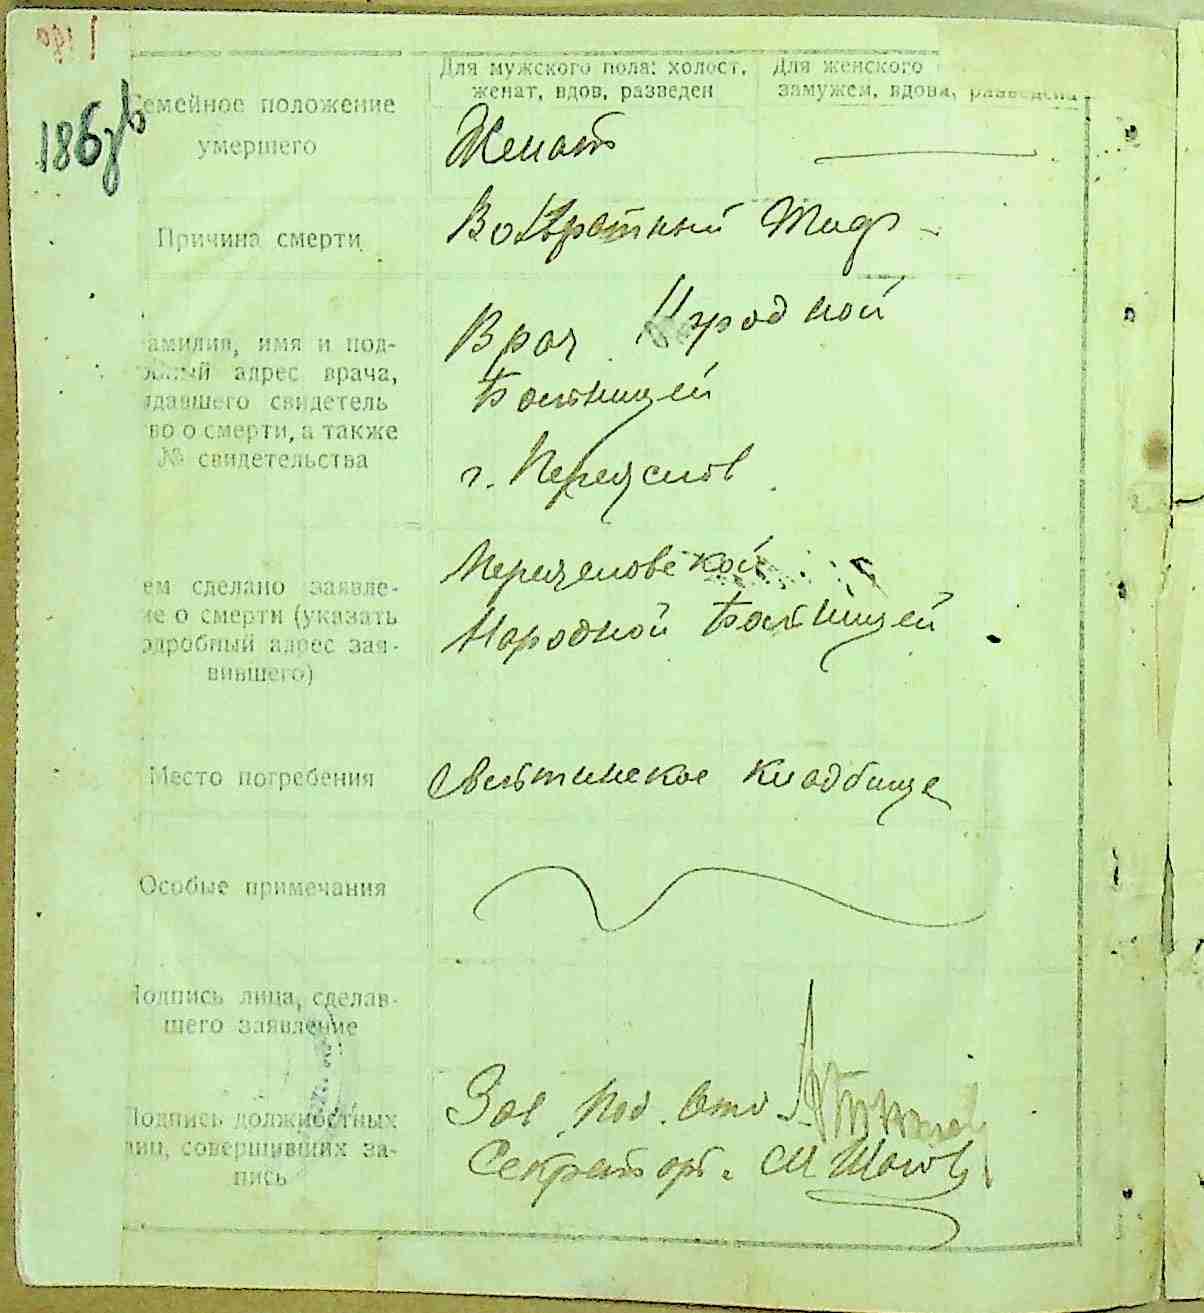 186 об
Для мужского пола: холост, женат, вдов, разведен
Для женского
замужем, вдова, разведена
Семейное положение
умершего
Женат
Причина смерти
Возвратный Тиф
амилия, имя и под-
адрес врача,
давшего свидетель
во о смерти, а также
№ свидетельства
Врач Народной
Больницей
г. Переяслов
ем сделано заявле-
ие о смерти (указать
одробный адрес зая-
вившего)
Переяславской
Народной Больницей
Место погребения
кладбище
Особые примечания
Подпись лица, сделав-
шего заявление
Подпись должностных
лиц, совершивших за-
пись
Зав. Под. Отд
Секретарь